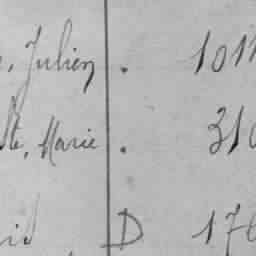 , Julien . 101
te, Marie . 310
D 176